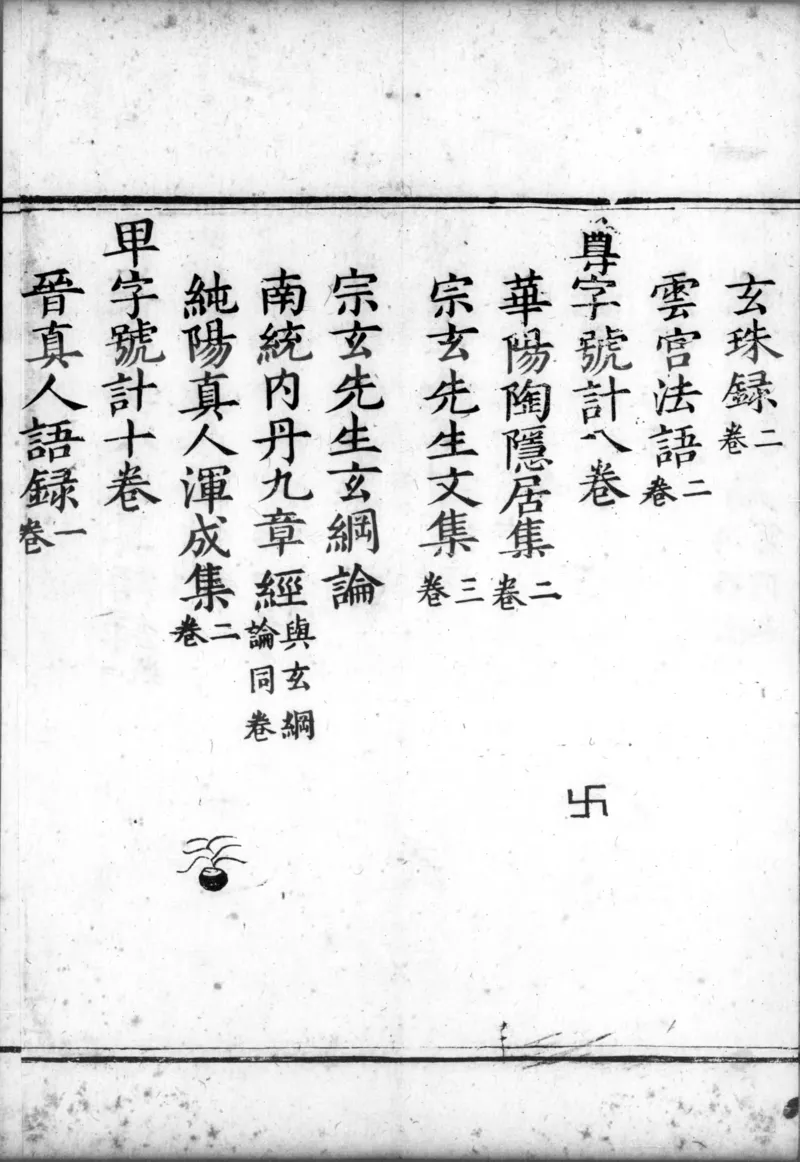 玄珠録二卷
雲宮法語二卷
尊字號計八卷
華陽陶隱居集二卷
宗玄先生文集三卷
宗玄先生玄綱論
南統内丹九章經與玄綱論同卷
純陽真人渾成集二卷
甲字號計十卷
晉真人語録一卷
卐